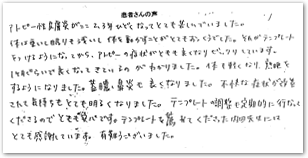 患者さんの声
アトピー性皮膚炎がここ2、3年ひどくなってとても苦しんでいました。
体は重いし眠りも浅いし体を動かすことがとてもおっくうでした。それがテンプレート
をつけるようになってから、アトピーの症状がとても良くなりビックリしています。
1ヶ月ぐらいで良くなってきているのがわかりました。体も軽くなり、熟睡を
するようになりました。蓄膿、鼻炎も良くなりました。不快な症状が改善
されて気持ちもとても明るくなりました。テンプレートの調整も定期的に行なって
くださるのでとても安心です。テンプレートを薦めてくださった内田先生には
とても感謝しています。有難うございました。